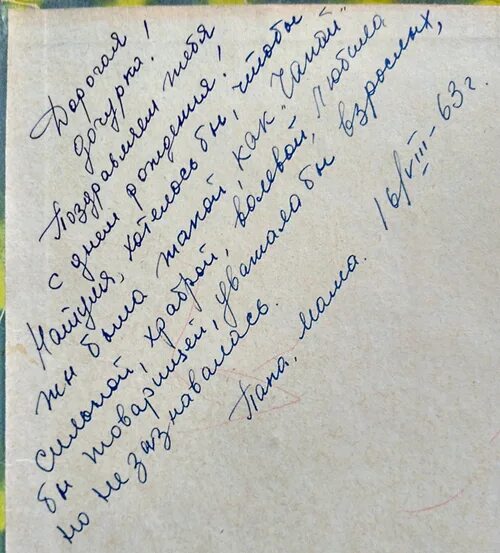 Дорогая!
дочурка!
Поздравляем тебя
с днем рождения!
Натуля, хотелось бы, чтобы
ты была такой, как "Чапай"
сильной, храброй, волевой, любила
бы товарищей, уважала бы взрослых,
но не зазнавалась.
Папа, мама. 16/VIII-63 г.